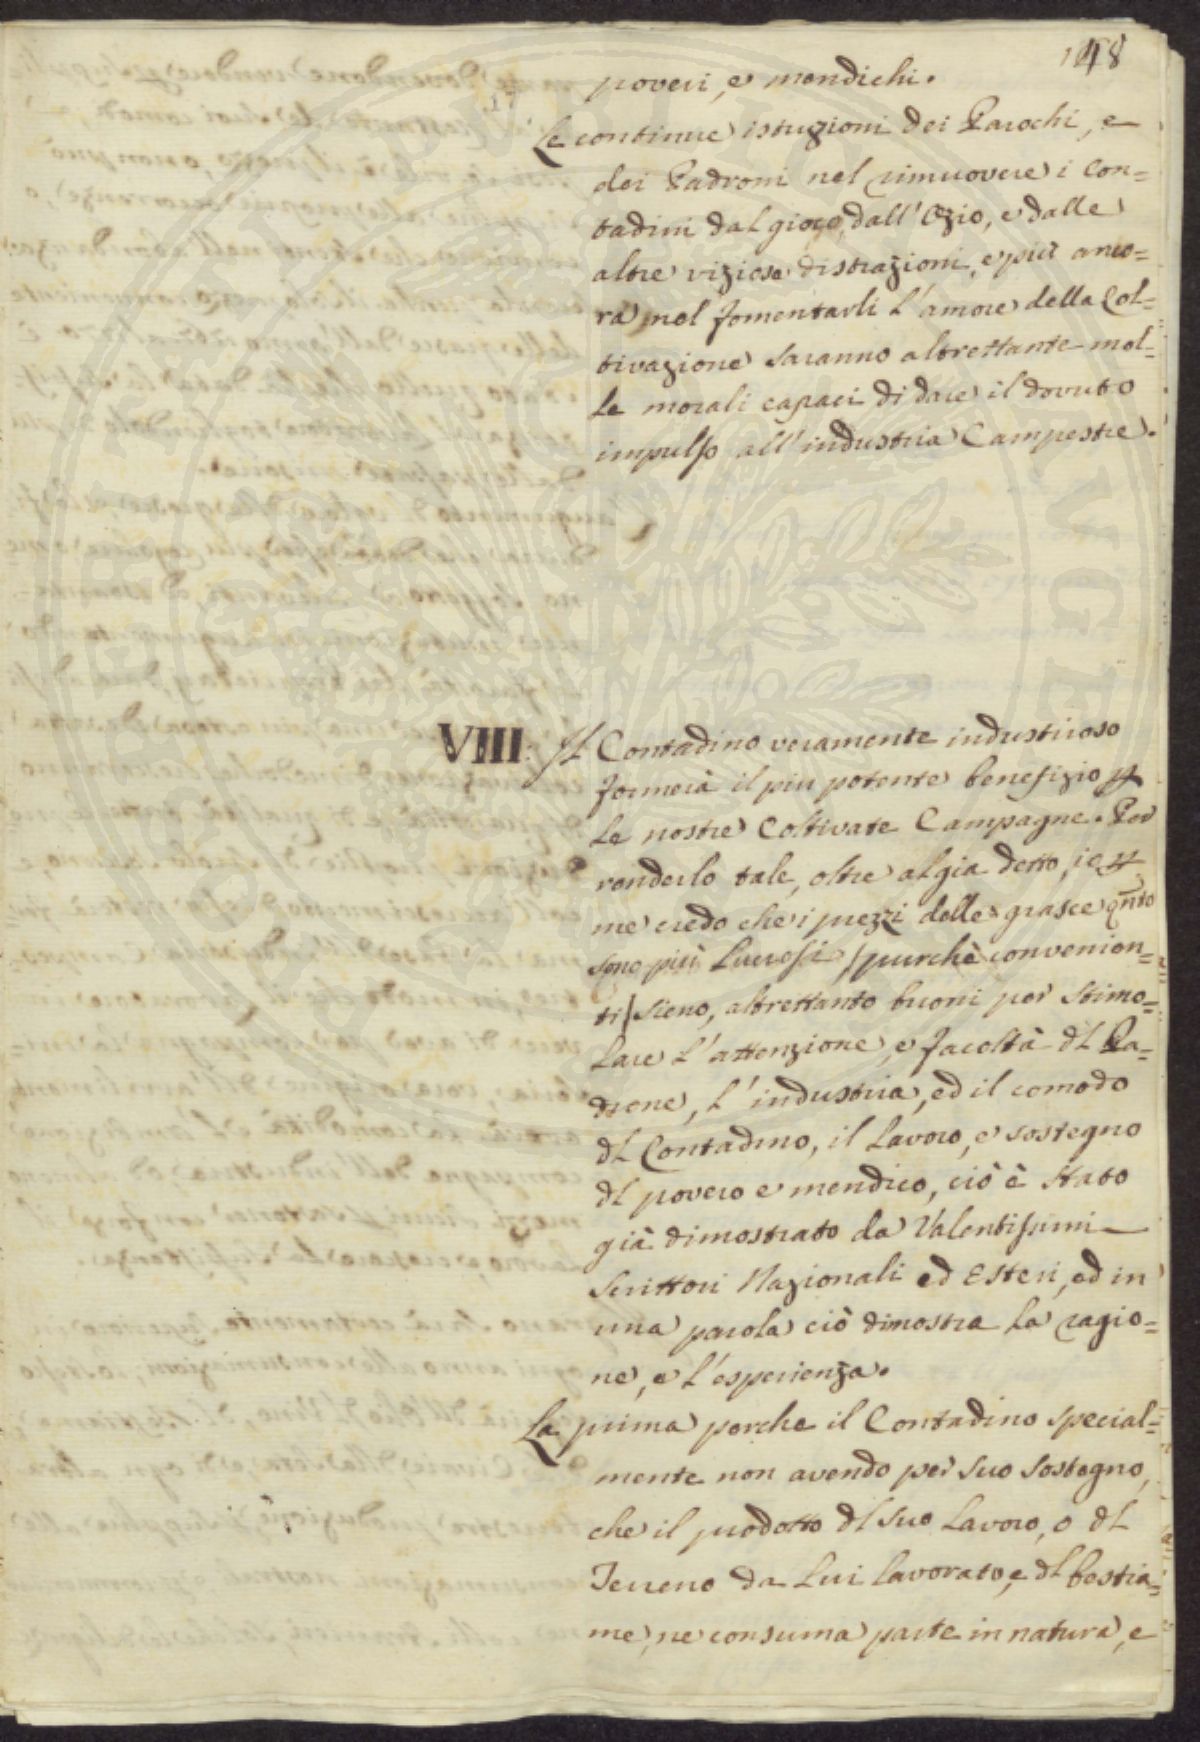 148
poveri, e mendichi.
Le continue istuzioni dei Parochi, e
dei Padroni nel rimuovere i Con=
tadini dal gioco, dall'Ozio, e dalle
altre viziose distrazioni, e più anco=
ra nel fomentarli l'amore della Col=
tivazione saranno altrettante mol=
le morali capaci di dare il dovuto
impulso all'industria Campestre.
VIII. Il Contadino veramente industrioso
formerà il piu potente benefizio p
le nostre Coltivate Campagne. Per
renderlo tale, oltre al gia detto, io p
me credo che i prezzi delle grasce qnto
sono più lucrosi / purchè convenien=
ti / sieno, altrettanto buoni per stimo=
lare l'attenzione, e facoltà dl Pa=
drone, l'industria, ed il comodo
dl Contadino, il lavoro, e sostegno
dl povero e mendico, ciò è stato
già dimostrato da Valentissimi
Scrittori Nazionali ed Esteri, ed in
una parola ciò dimostra la ragio=
ne, e l'esperienza.
La prima perche il Contadino special=
mente non avendo per suo sostegno,
che il prodotto dl suo lavoro, o dl
Terreno da lui lavorato, e dl bestia=
me, ne consuma parte in natura, e